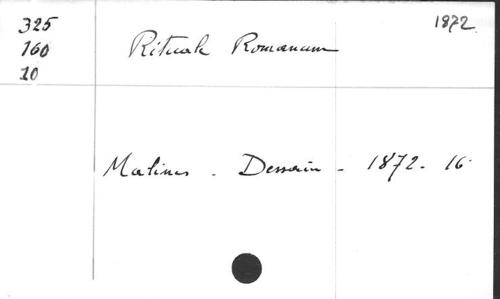 325
160
10
Rituale Romanum
1872
Malines - Dessain - 1872 - 16